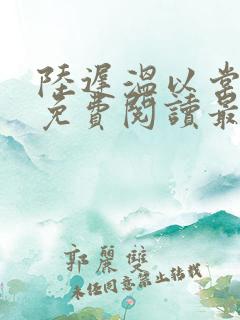 陸遲溫以常
免費閱讀最
郭麗雙
未经同意禁止转载